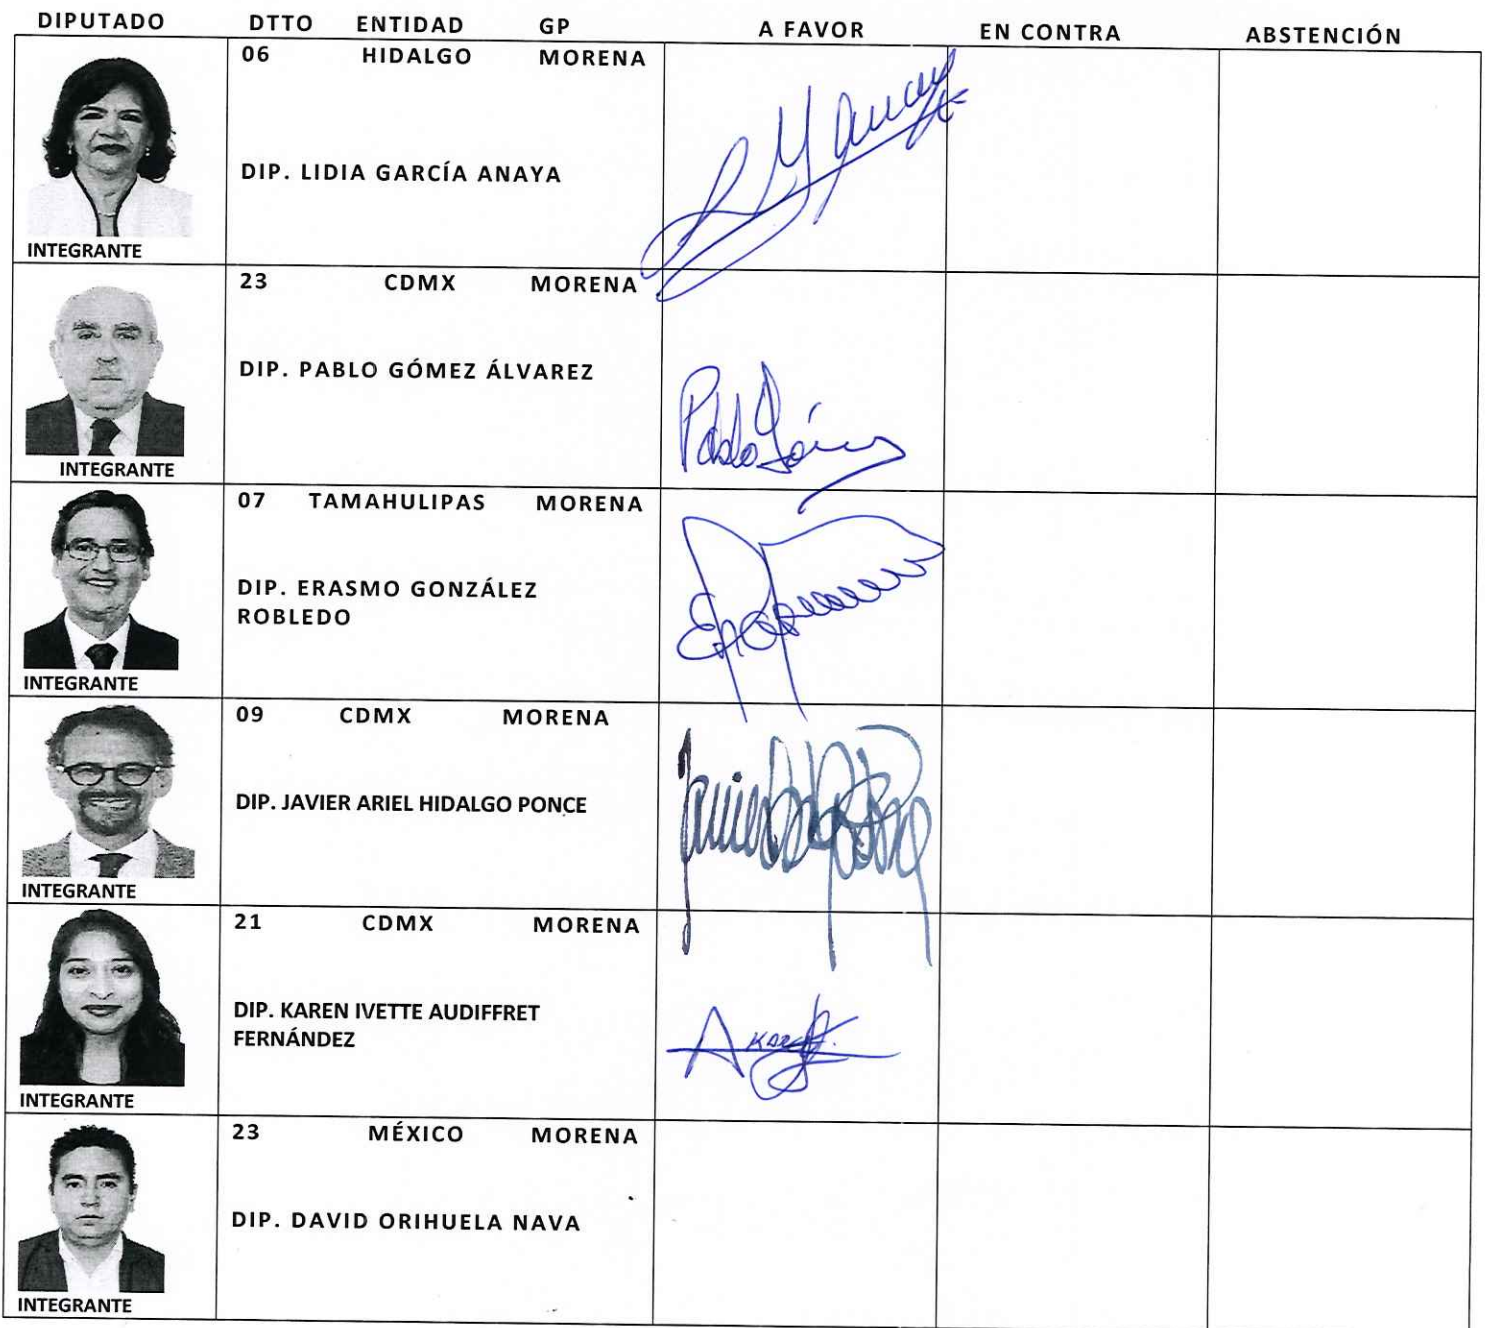 DIPUTADO DTTO ENTIDAD GP A FAVOR EN CONTRA ABSTENCIÓN
06 HIDALGO MORENA
DIP. LIDIA GARCÍA ANAYA
INTEGRANTE
23 CDMX MORENA
DIP. PABLO GÓMEZ ÁLVAREZ
Pablo Gómez
INTEGRANTE
07 TAMAHULIPAS MORENA
DIP. ERASMO GONZÁLEZ
ROBLEDO
INTEGRANTE
09 CDMX MORENA
DIP. JAVIER ARIEL HIDALGO PONCE
INTEGRANTE
21 CDMX MORENA
DIP. KAREN IVETTE AUDIFFRET
FERNÁNDEZ
INTEGRANTE
23 MÉXICO MORENA
DIP. DAVID ORIHUELA NAVA
INTEGRANTE